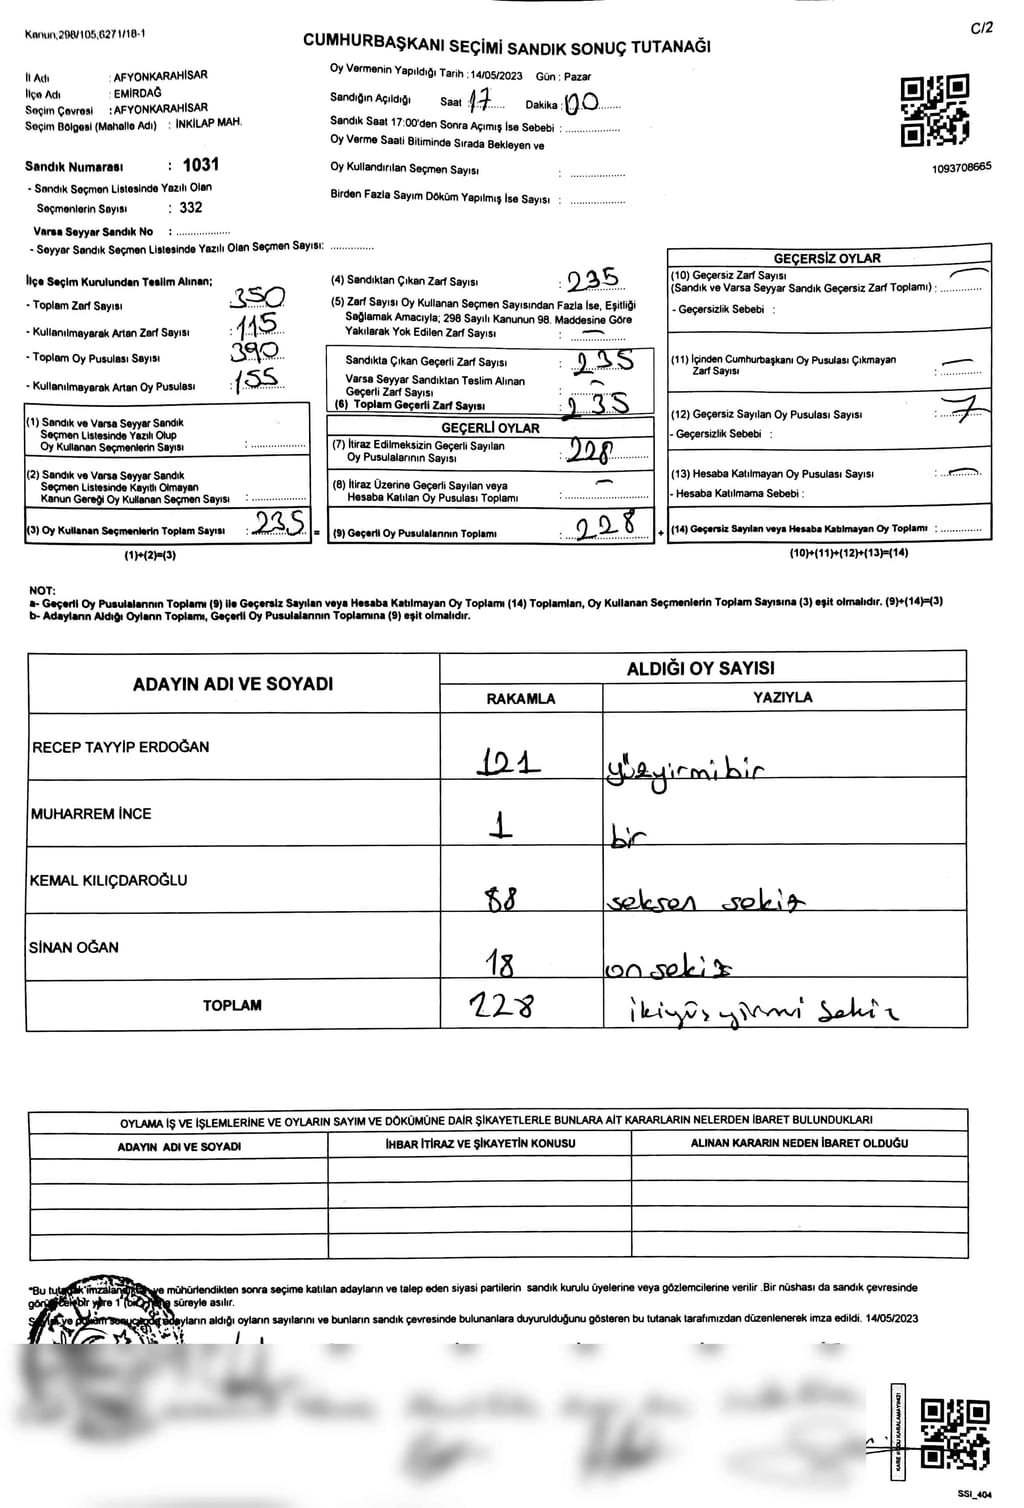 Kanun,298/105,6271/18-1
C/2
CUMHURBAŞKANI SEÇİMİ SANDIK SONUÇ TUTANAĞI
İl Adı : AFYONKARAHİSAR
İlçe Adı : EMİRDAĞ
Seçim Çevresi : AFYONKARAHİSAR
Seçim Bölgesi (Mahalle Adı) : İNKİLAP MAH.
Oy Vermenin Yapıldığı Tarih : 14/05/2023 Gün : Pazar
Sandığın Açıldığı Saat : 17 Dakika : 00
Sandık Saat 17:00'den Sonra Açımış İse Sebebi : ....................
Oy Verme Saati Bitiminde Sırada Bekleyen ve
Oy Kullandırılan Seçmen Sayısı : ....................
Birden Fazla Sayım Döküm Yapılmış İse Sayısı : ....................
1093708665
Sandık Numarası : 1031
- Sandık Seçmen Listesinde Yazılı Olan
Seçmenlerin Sayısı : 332
Varsa Seyyar Sandık No : ....................
- Seyyar Sandık Seçmen Listesinde Yazılı Olan Seçmen Sayısı: ................
İlçe Seçim Kurulundan Teslim Alınan;
- Toplam Zarf Sayısı 350
- Kullanılmayarak Artan Zarf Sayısı : 115
- Toplam Oy Pusulası Sayısı 390
- Kullanılmayarak Artan Oy Pusulası : 155
(1) Sandık ve Varsa Seyyar Sandık
Seçmen Listesinde Yazılı Olup
Oy Kullanan Seçmenlerin Sayısı : ....................
(2) Sandık ve Varsa Seyyar Sandık
Seçmen Listesinde Kayıtlı Olmayan
Kanun Gereği Oy Kullanan Seçmen Sayısı : ....................
(3) Oy Kullanan Seçmenlerin Toplam Sayısı : 235 =
(1)+(2)=(3)
(4) Sandıktan Çıkan Zarf Sayısı : 235
(5) Zarf Sayısı Oy Kullanan Seçmen Sayısından Fazla İse, Eşitliği
Sağlamak Amacıyla; 298 Sayılı Kanunun 98. Maddesine Göre
Yakılarak Yok Edilen Zarf Sayısı : —
Sandıkta Çıkan Geçerli Zarf Sayısı : 235
Varsa Seyyar Sandıktan Teslim Alınan
Geçerli Zarf Sayısı : —
(6) Toplam Geçerli Zarf Sayısı : 235
GEÇERLİ OYLAR
(7) İtiraz Edilmeksizin Geçerli Sayılan
Oy Pusulalarının Sayısı : 228
(8) İtiraz Üzerine Geçerli Sayılan veya
Hesaba Katılan Oy Pusulası Toplamı : —
(9) Geçerli Oy Pusulalarının Toplamı : 228 +
GEÇERSİZ OYLAR
(10) Geçersiz Zarf Sayısı
(Sandık ve Varsa Seyyar Sandık Geçersiz Zarf Toplamı) : —
- Geçersizlik Sebebi :
(11) İçinden Cumhurbaşkanı Oy Pusulası Çıkmayan
Zarf Sayısı : —
(12) Geçersiz Sayılan Oy Pusulası Sayısı : 7
- Geçersizlik Sebebi :
(13) Hesaba Katılmayan Oy Pusulası Sayısı : —
- Hesaba Katılmama Sebebi :
(14) Geçersiz Sayılan veya Hesaba Katılmayan Oy Toplamı : ................
(10)+(11)+(12)+(13)=(14)
NOT:
a- Geçerli Oy Pusulalarının Toplamı (9) ile Geçersiz Sayılan veya Hesaba Katılmayan Oy Toplamı (14) Toplamları, Oy Kullanan Seçmenlerin Toplam Sayısına (3) eşit olmalıdır. (9)+(14)=(3)
b- Adayların Aldığı Oyların Toplamı, Geçerli Oy Pusulalarının Toplamına (9) eşit olmalıdır.
ADAYIN ADI VE SOYADI
ALDIĞI OY SAYISI
RAKAMLA YAZIYLA
RECEP TAYYİP ERDOĞAN 121 yüzyirmibir
MUHARREM İNCE 1 bir
KEMAL KILIÇDAROĞLU 88 seksen sekiz
SİNAN OĞAN 18 on sekiz
TOPLAM 228 ikiyüzyirmi sekiz
OYLAMA İŞ VE İŞLEMLERİNE VE OYLARIN SAYIM VE DÖKÜMÜNE DAİR ŞİKAYETLERLE BUNLARA AİT KARARLARIN NELERDEN İBARET BULUNDUKLARI
ADAYIN ADI VE SOYADI İHBAR İTİRAZ VE ŞİKAYETİN KONUSU ALINAN KARARIN NEDEN İBARET OLDUĞU
"Bu imzalandıktan ve mühürlendikten sonra seçime katılan adayların ve talep eden siyasi partilerin sandık kurulu üyelerine veya gözlemcilerine verilir .Bir nüshası da sandık çevresinde
bir yere 1 süreyle asılır.
ve adayların aldığı oyların sayılarını ve bunların sandık çevresinde bulunanlara duyurulduğunu gösteren bu tutanak tarafımızdan düzenlenerek imza edildi. 14/05/2023
SSI_404